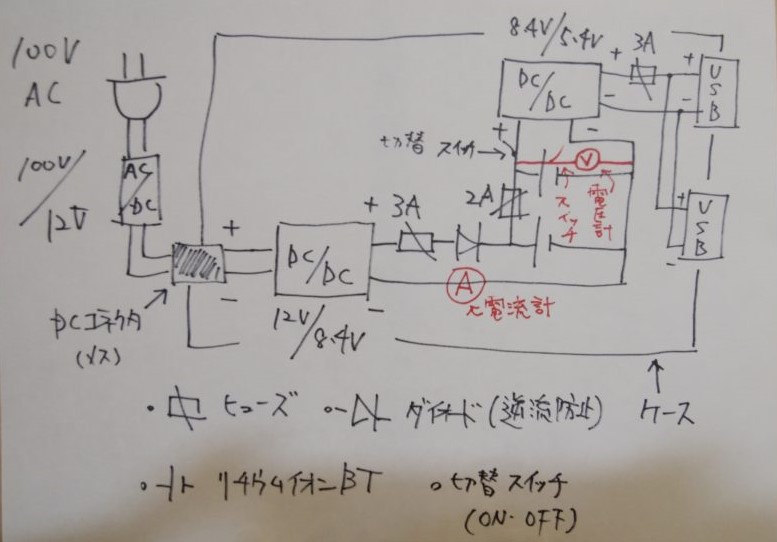 100V
AC
100V/12V
AC/DC
DCコネクタ
(メス)
+
-
DC/DC
12V/8.4V
+
-
3A
2A
切替スイッチ→
8.4V/5.4V
DC/DC
+
-
+
-
3A
+
-
USB
+
-
USB
V
スイッチ
電圧計
A
電流計
ケース
・ ヒューズ
・ ダイオード(逆流防止)
・ リチウムイオンBT
・ 切替スイッチ
(ON・OFF)